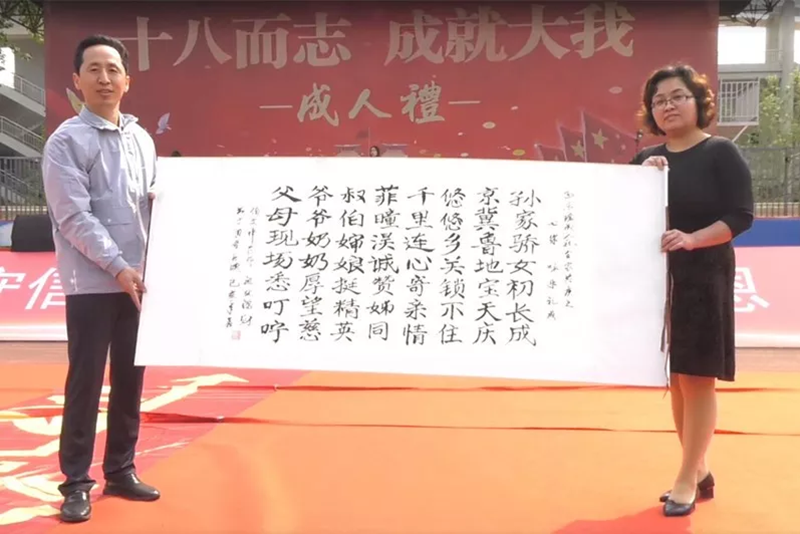 十八而志 成就大我
成人禮
守信
恩
七律
孙家骄女初长成
京冀鲁地宝天庆
悠悠乡关锁不住
千里连心寄亲情
菲瞳淏诚赞姊同
叔伯婶娘挺精英
爷爷奶奶厚望慈
父母现场悉叮咛